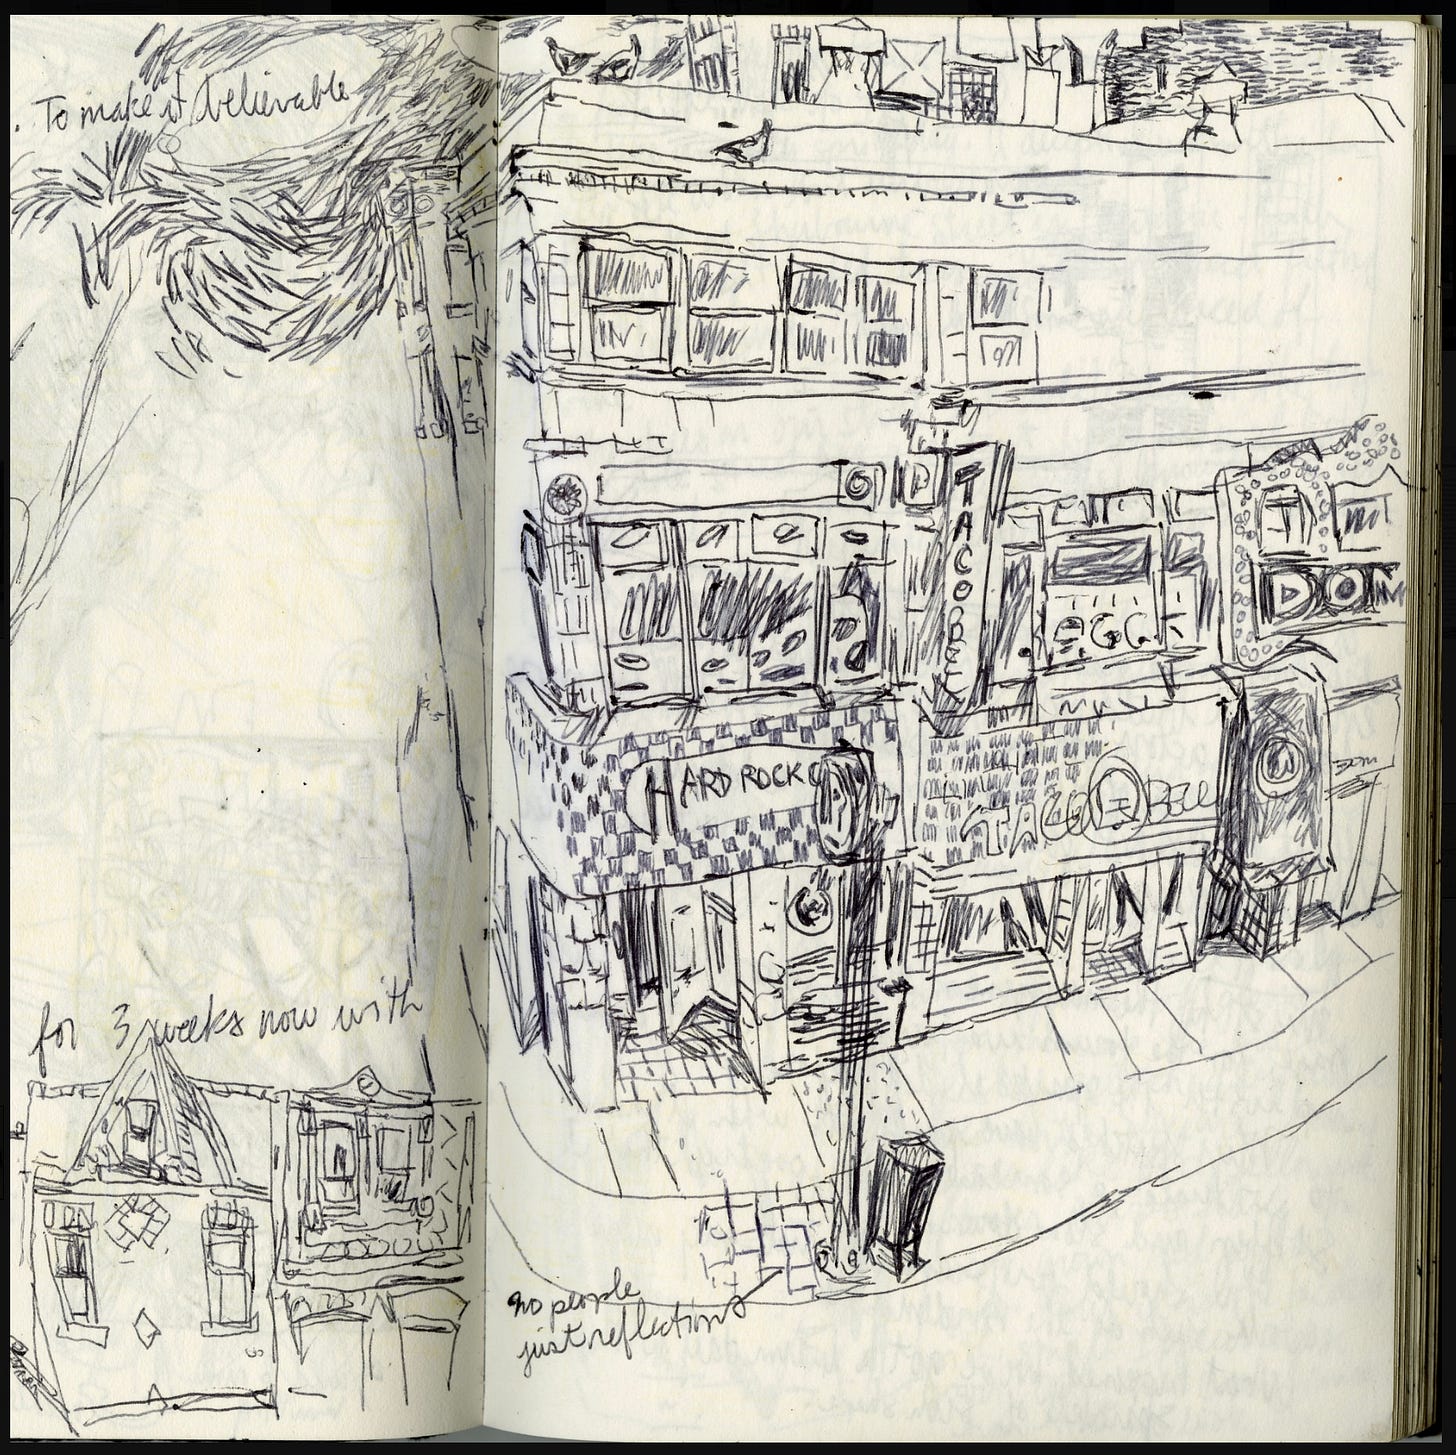 . To make it believable
for 3 weeks now with
TACO BELL
EGG
DOM
HARD ROCK C
TACO BELL
no people
just reflections